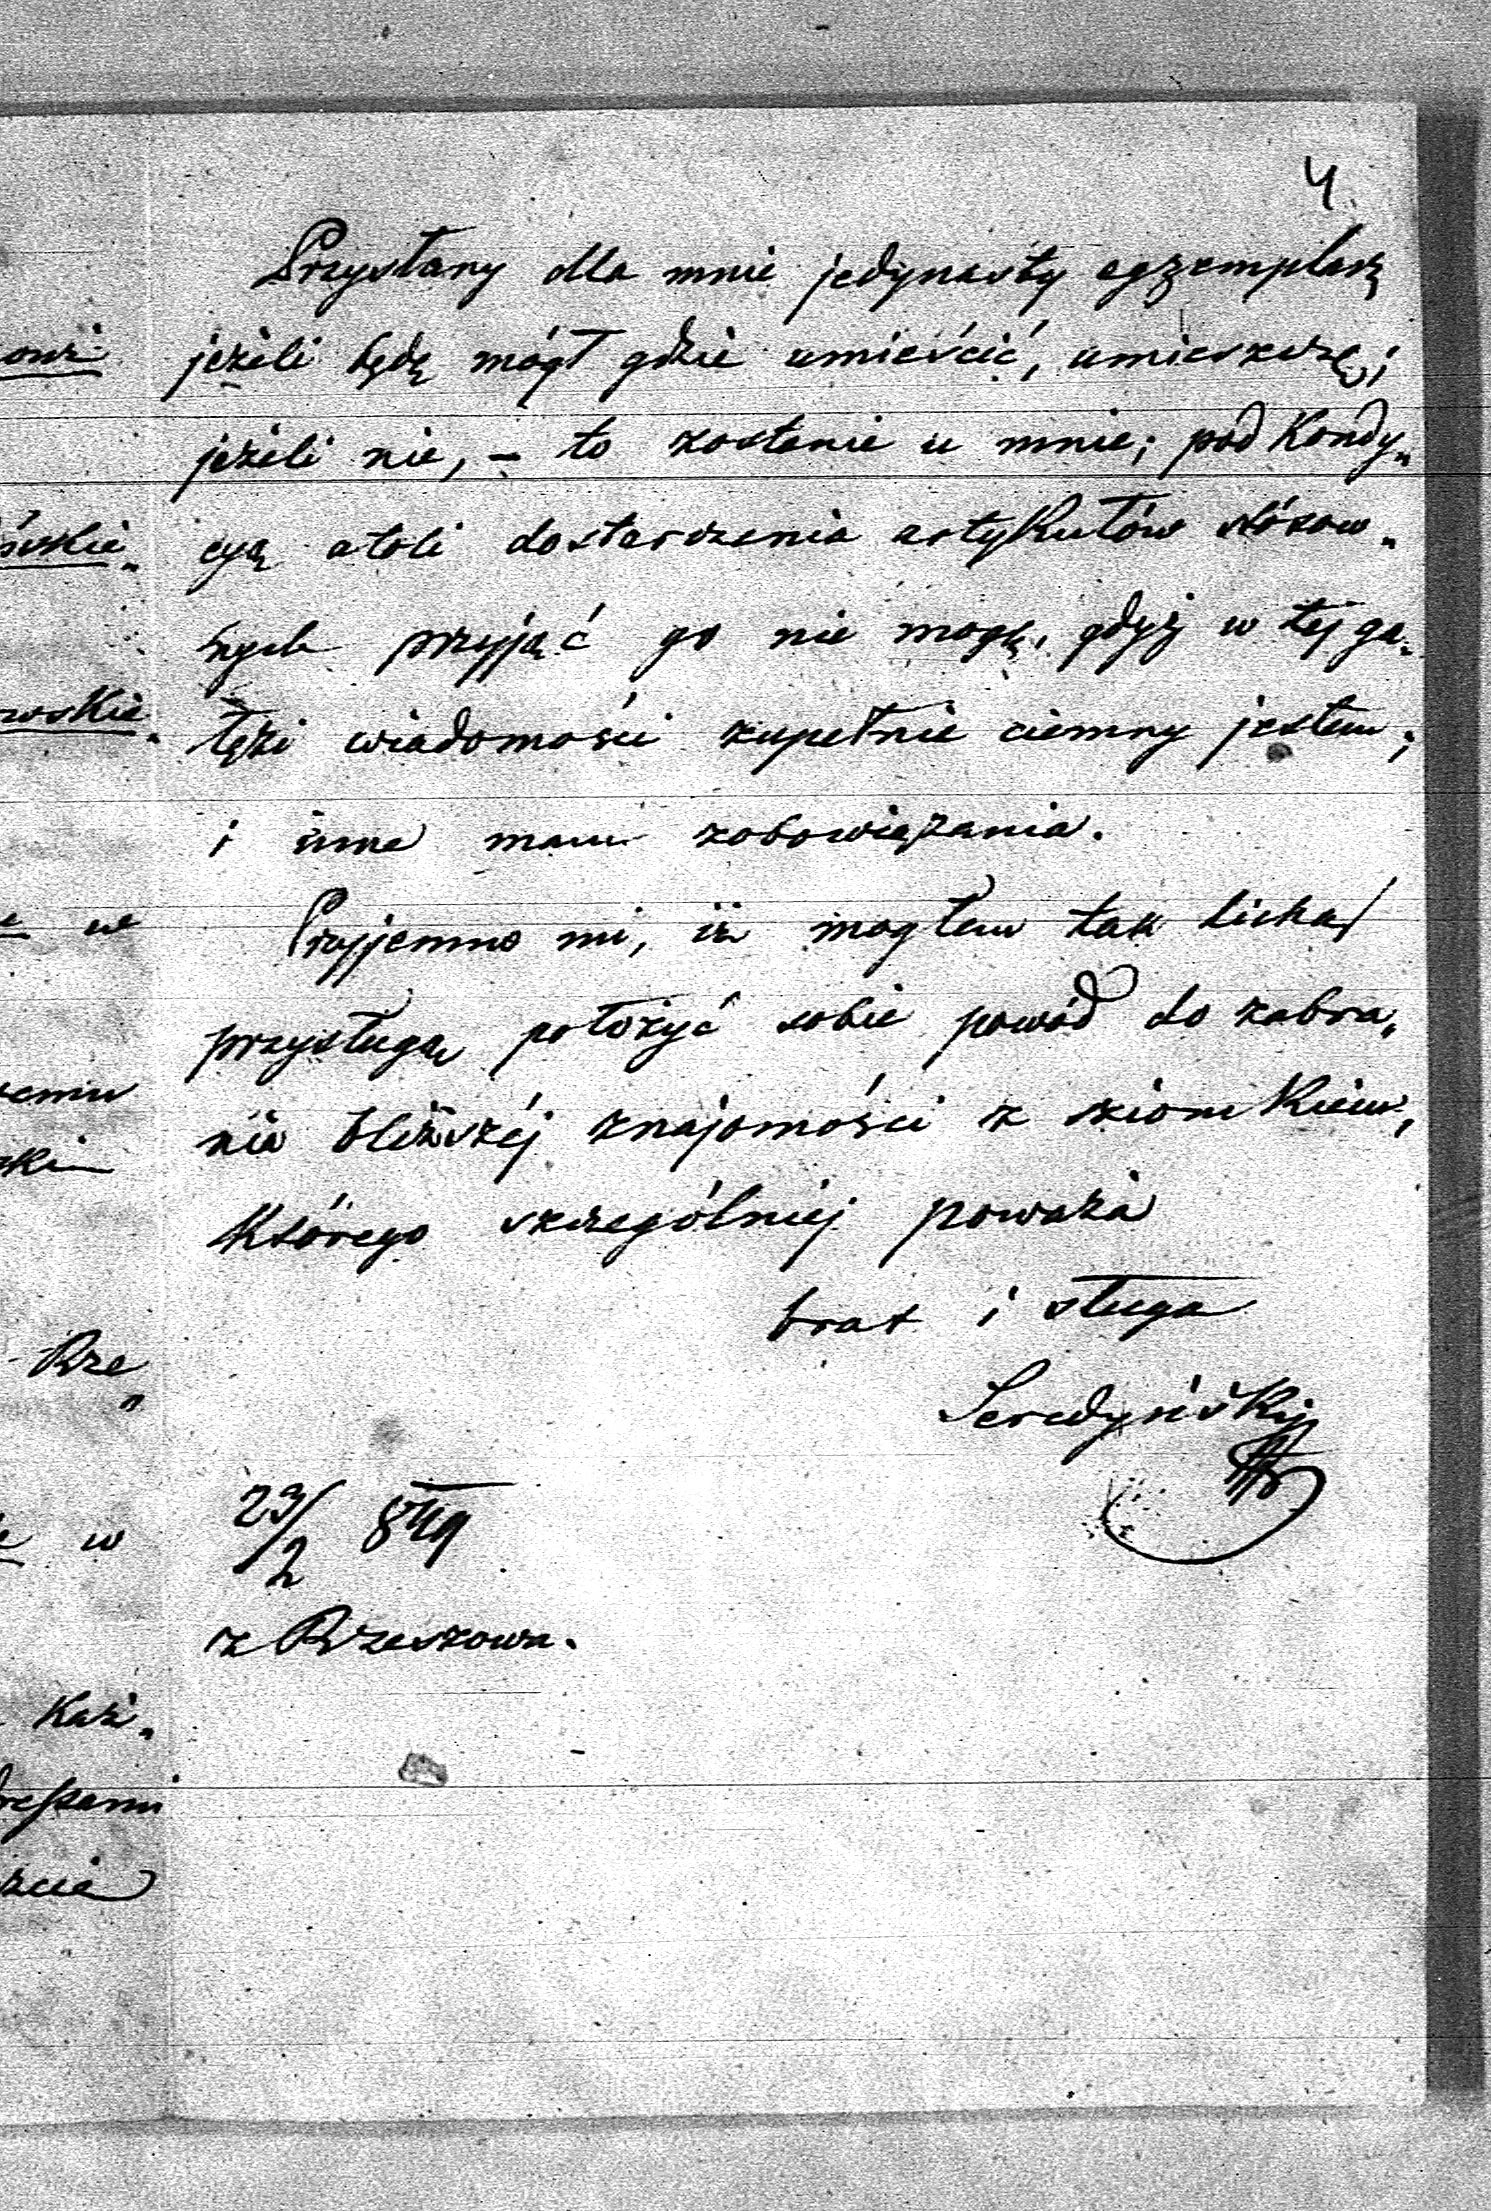 4
Przysłany dla mnie jedynasty egzemplarz
jeżeli będę mógł gdzie umieścić, umieszczę;
jeżeli nie, – to zostanie u mnie; pod Kondy„
cyą atoli dostarczenia artykułów stósow„
nych przyjąć go nie mogę, gdyż w tej ga„
łęzi wiadomości zupełnie ciemny jestem;
i inne mam zobowiązania.
Przyjemno mi, iż mogłem tak lichą
przysługą położyć sobie powód do zabra„
nia bliższéj znajomości z ziomkiem,
Którego szczególniej poważa
brat i sługa
Seredyński
23/2 849
z Rzeszowa.